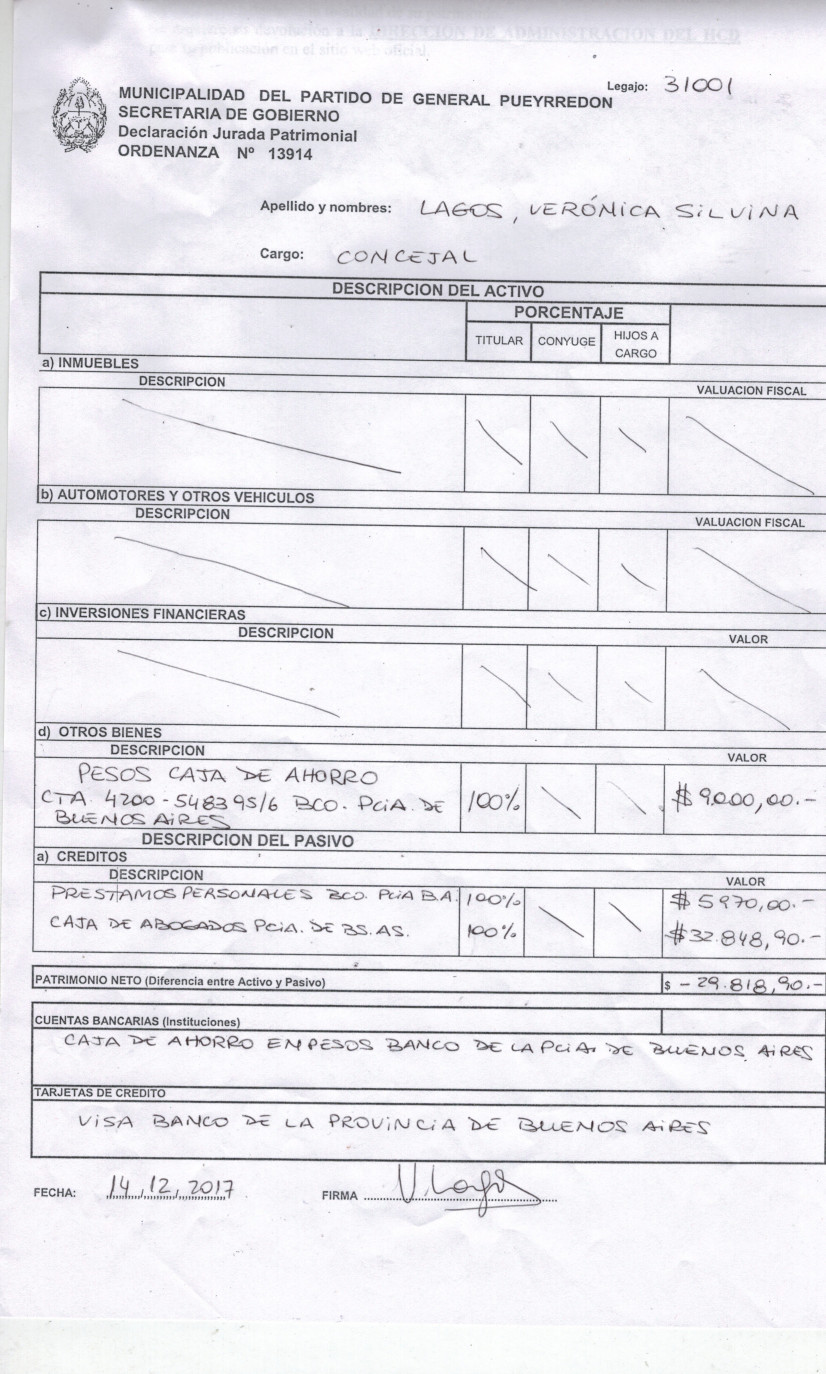 se requiere su devolución a la DIRECCION DE ADMINISTRACION DEL HCD
para la publicación en el sitio web oficial.
Legajo: 31001
MUNICIPALIDAD DEL PARTIDO DE GENERAL PUEYRREDON
SECRETARIA DE GOBIERNO
Declaración Jurada Patrimonial
ORDENANZA Nº 13914
Apellido y nombres: LAGOS, VERÓNICA SILVINA
Cargo: CONCEJAL
DESCRIPCION DEL ACTIVO
PORCENTAJE
TITULAR CONYUGE HIJOS A CARGO
a) INMUEBLES
DESCRIPCION VALUACION FISCAL
b) AUTOMOTORES Y OTROS VEHICULOS
DESCRIPCION VALUACION FISCAL
c) INVERSIONES FINANCIERAS
DESCRIPCION VALOR
d) OTROS BIENES
DESCRIPCION VALOR
PESOS CAJA DE AHORRO
CTA. 4200-548395/6 BCO. PCIA. DE 100% $ 9.000,00.-
BUENOS AIRES
DESCRIPCION DEL PASIVO
a) CREDITOS
DESCRIPCION VALOR
PRESTAMOS PERSONALES BCO. PCIA B.A. 100% $ 5970,00.-
CAJA DE ABOGADOS PCIA. DE BS. AS. 100% $32.848,90.-
PATRIMONIO NETO (Diferencia entre Activo y Pasivo) $ - 29.818,90.-
CUENTAS BANCARIAS (Instituciones)
CAJA DE AHORRO EN PESOS BANCO DE LA PCIA. DE BUENOS AIRES
TARJETAS DE CREDITO
VISA BANCO DE LA PROVINCIA DE BUENOS AIRES
FECHA: 14, 12, 2017 FIRMA V. Lagos